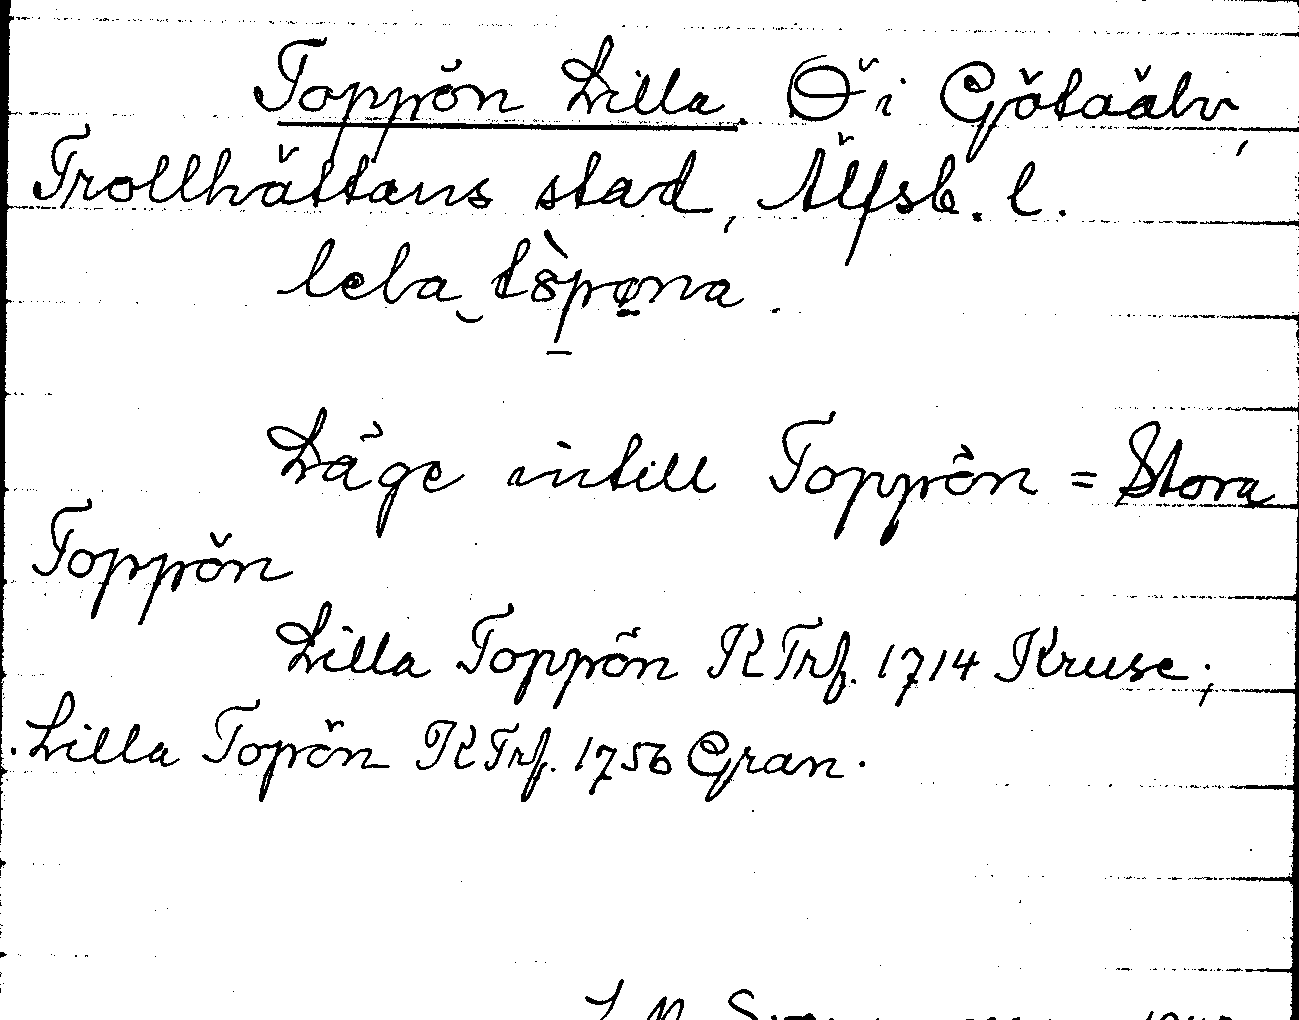 Toppön Lilla. Ö i Götaälv,
Trollhättans stad, Älfsb. l.
Läge intill Toppön = Stora
Toppön
Lilla Toppön KTrf. 1714 Kruse;
Lilla Topön KTrf. 1756 Gran.